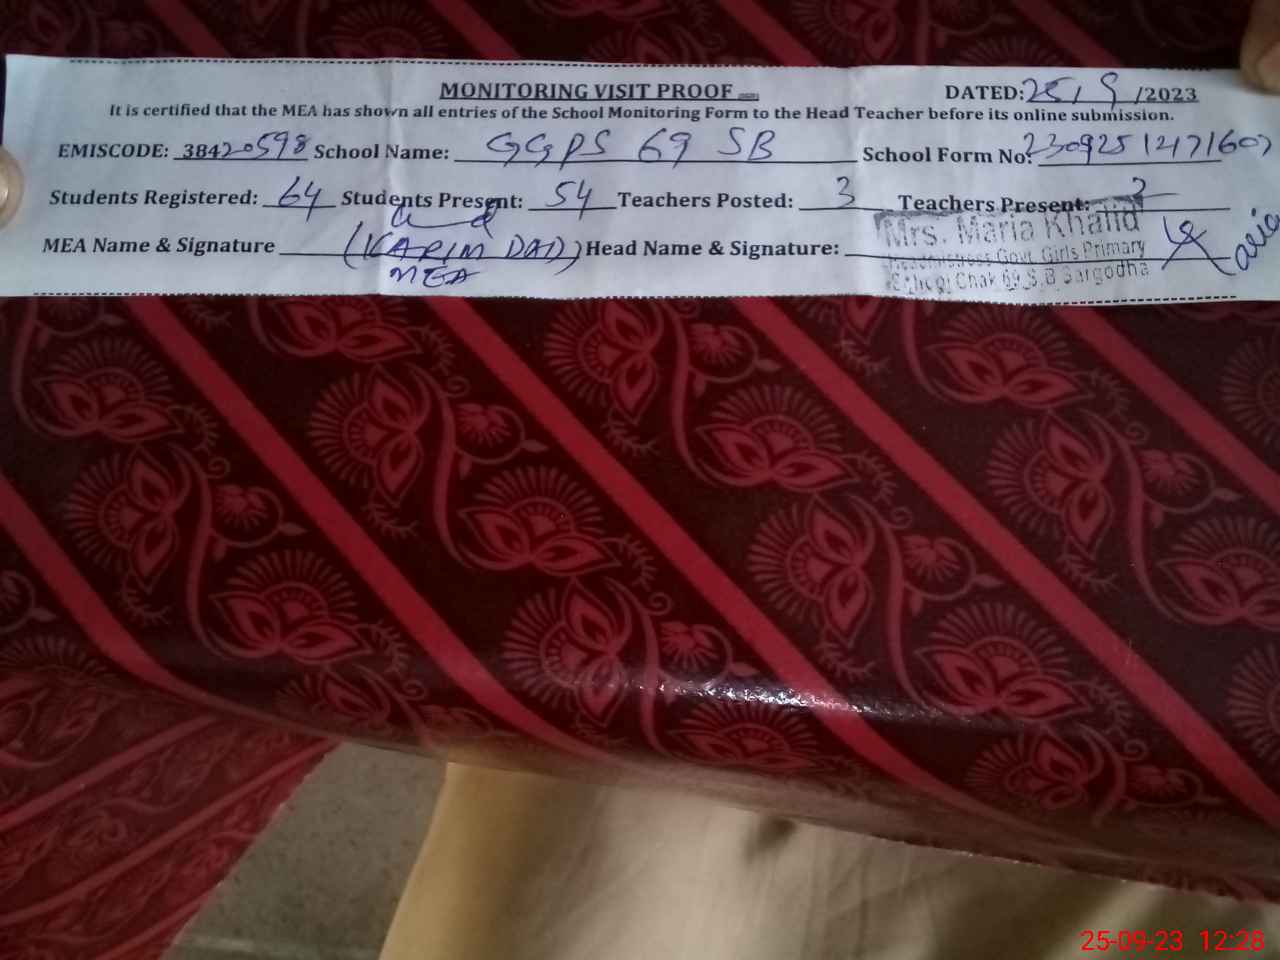 MONITORING VISIT PROOF
DATED: 25/9/2023
It is certified that the MEA has shown all entries of the School Monitoring Form to the Head Teacher before its online submission.
EMISCODE: 38420598 School Name: GGPS 69 SB School Form No: 23092512171607
Students Registered: 64 Students Present: 54 Teachers Posted: 3 Teachers Present: 2
MEA Name & Signature (KARIM DAD) Head Name & Signature:
MEA
Mrs. Maria Khalid
Headmistress Govt. Girls Primary
School Chak 69 S.B Sargodha
25-09-23 12:28